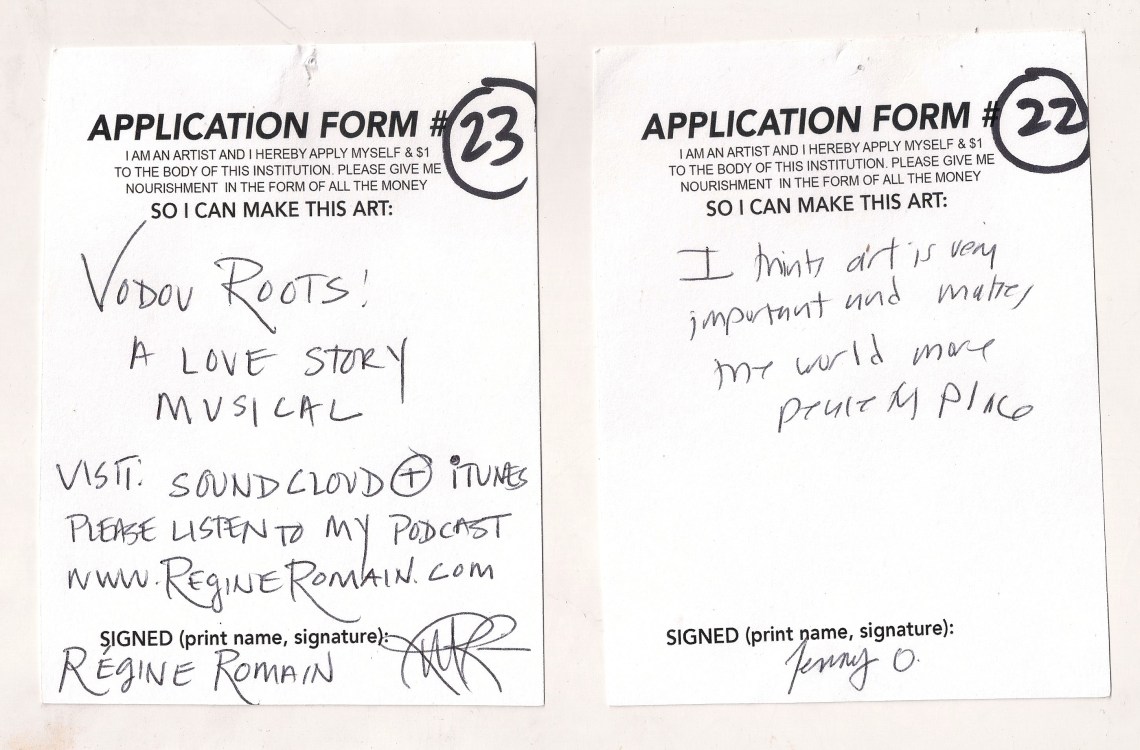 APPLICATION FORM #23
I AM AN ARTIST AND I HEREBY APPLY MYSELF & $1
TO THE BODY OF THIS INSTITUTION. PLEASE GIVE ME
NOURISHMENT IN THE FORM OF ALL THE MONEY
SO I CAN MAKE THIS ART:
VODOU ROOTS!
A LOVE STORY
MUSICAL
VISIT: SOUNDCLOUD + iTUNES
PLEASE LISTEN TO MY PODCAST
WWW.REGINEROMAIN.COM
SIGNED (print name, signature):
RÉGINE ROMAIN
APPLICATION FORM #22
I AM AN ARTIST AND I HEREBY APPLY MYSELF & $1
TO THE BODY OF THIS INSTITUTION. PLEASE GIVE ME
NOURISHMENT IN THE FORM OF ALL THE MONEY
SO I CAN MAKE THIS ART:
I think art is very
important and makes
the world more
place
SIGNED (print name, signature):
Jenny O.